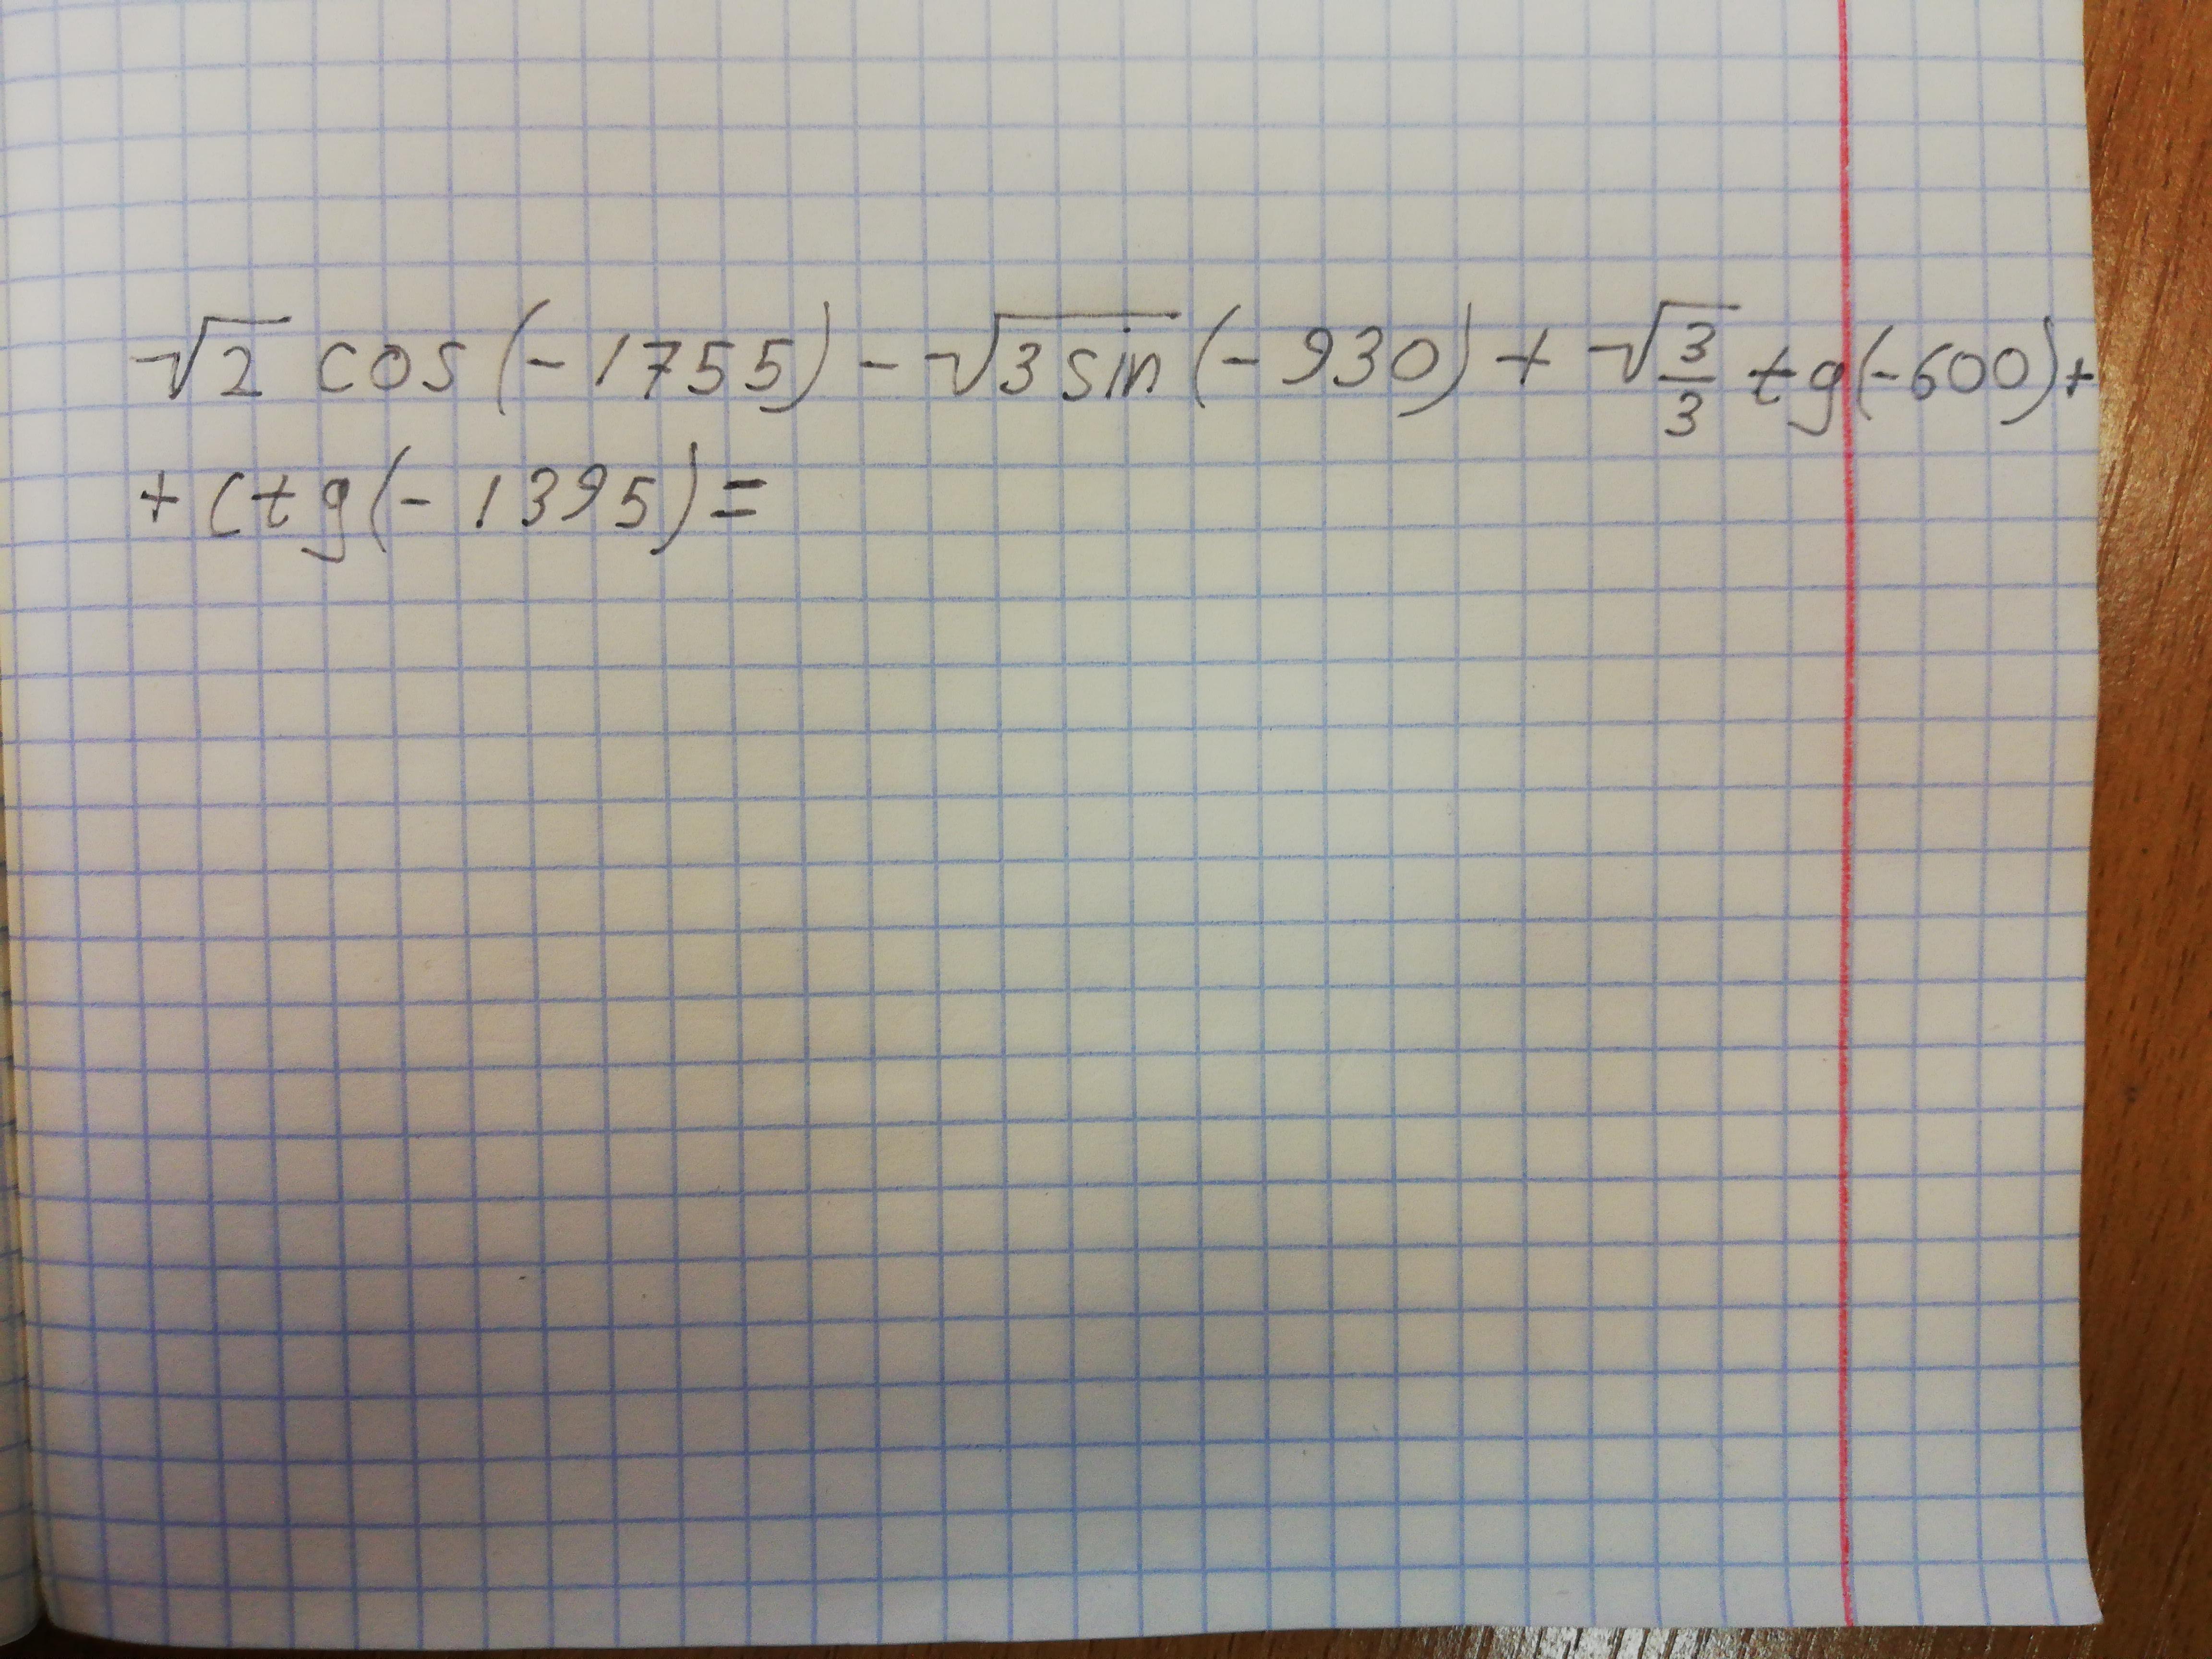 √2 cos(-1755) - √3 sin(-930) + √3/3 tg(-600)+
+ ctg(-1395)=